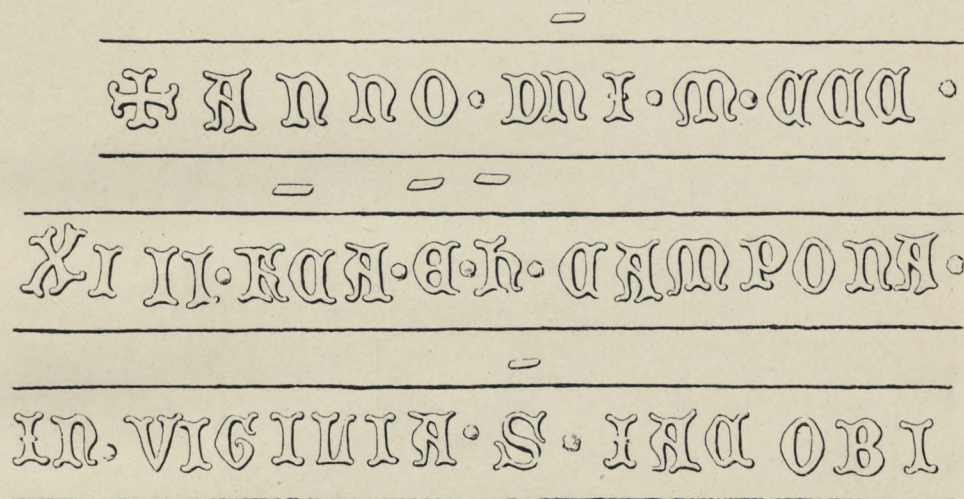 ✠ ANNO · DNI · M · CCC ·
XIIII · FCA · E · H · CAMPONA ·
IN · VIGILIA · S · IACOBI